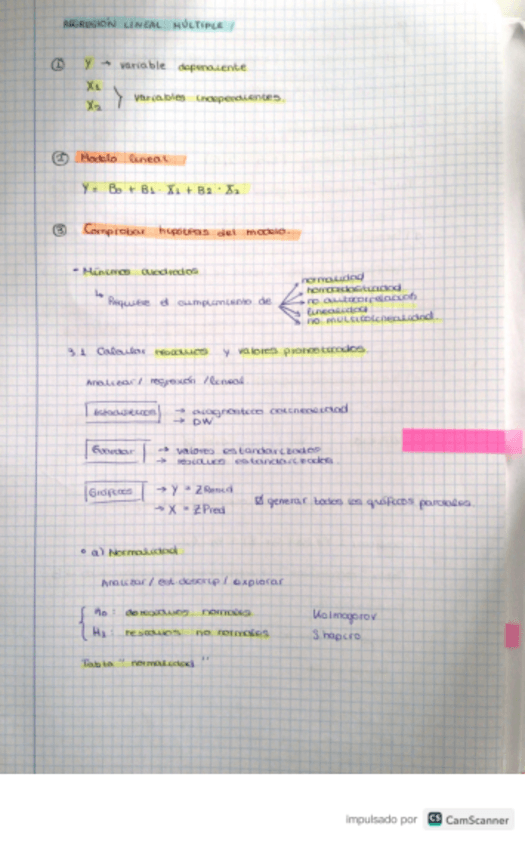 REGRESIÓN LINEAL MÚLTIPLE
① Y → variable dependiente
X₁
X₂ } variables independientes
② Modelo lineal
Y = B₀ + B₁ · X₁ + B₂ · X₂
③ Comprobar hipótesis del modelo.
- Mínimos cuadrados
↳ Requiere el cumplimiento de
normalidad
homocedasticidad
no autocorrelación
linealidad
no multicolinealidad
3.1 Calcular residuos y valores pronosticados.
Analizar / regresión / lineal
Estadísticos → diagnóstico colinealidad
→ DW
Guardar → valores estandarizados
→ residuos estandarizados
Gráficos → Y = ZResid
→ X = ZPred
☑ generar todos los gráficos parciales.
a) Normalidad
Analizar / est. descrip / explorar
H₀: residuos normales Kolmogorov
H₁: residuos no normales Shapiro
Tabla "normalidad"
impulsado por CS CamScanner